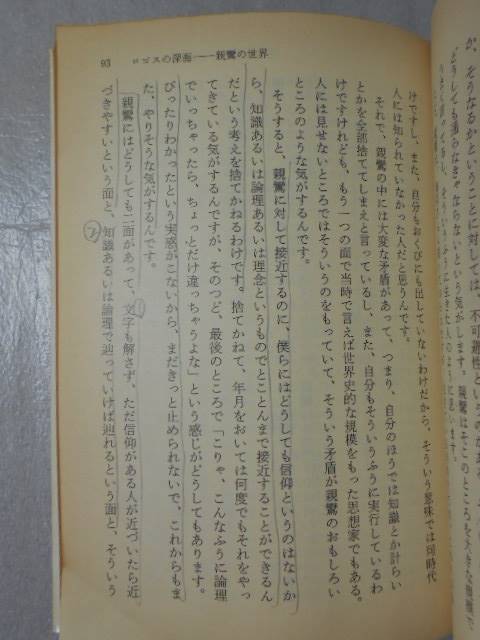 93　ロゴスの深海――親鸞の世界
けですし、また、自分もおくびにも出していないわけだから、そういう意味では同時代
人には知られていなかった人だと思うんです。
それで、親鸞の中には大変な矛盾があって、つまり、自分のほうでは知識とか計らい
とかを全部捨ててしまえと言っているし、また、自分もそういうふうに実行しているわ
けですけれども、もう一つの面で当時で言えば世界史的な規模をもった思想家でもある。
人には見せないところではそういうのをもっていて、そういう矛盾が親鸞のおもしろい
ところのような気がするんです。
そうすると、親鸞に対して接近するのに、僕らにはどうしても信仰というのはないか
ら、知識あるいは論理あるいは理念というものでとことんまで接近することができるん
だという考えを捨てかねるわけです。捨てかねて、年月をおいては何度でもそれをやっ
てきている気がするんですが、そのつど、最後のところで「こりゃ、こんなふうに論理
でいっちゃったら、ちょっとだけ違っちゃうよな」という感じがどうしてもあります。
ぴったりわかったという実感がこないから、まだきっと止められないで、これからもま
た、やりそうな気がするんです。
親鸞にはどうしても二面があって、文字も解さず、ただ信仰がある人が近づいたら近
づきやすいという面と、知識あるいは論理で辿っていけば辿れるという面と、そういう